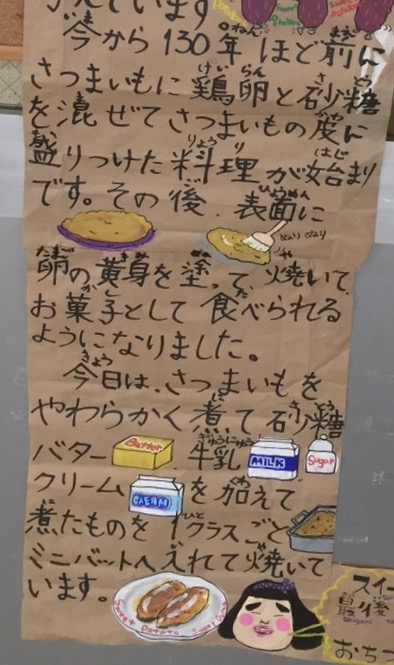 えています。
今から130年ほど前に
さつまいもに鶏卵と砂糖
を混ぜてさつまいもの皮に
盛りつけた料理が始まり
です。その後、表面に
ぬりぬり
卵の黄身を塗って、焼いて、
お菓子として食べられる
ようになりました。
今日は、さつまいもを
やわらかく煮て砂糖
バター Butter 、牛乳 MILK Sugar
クリーム CREAM を加えて
煮たものを1クラスごと
ミニバットへ入れて焼いて
います。
Sweet potato Sweet Potato
スイー
最後
おちー